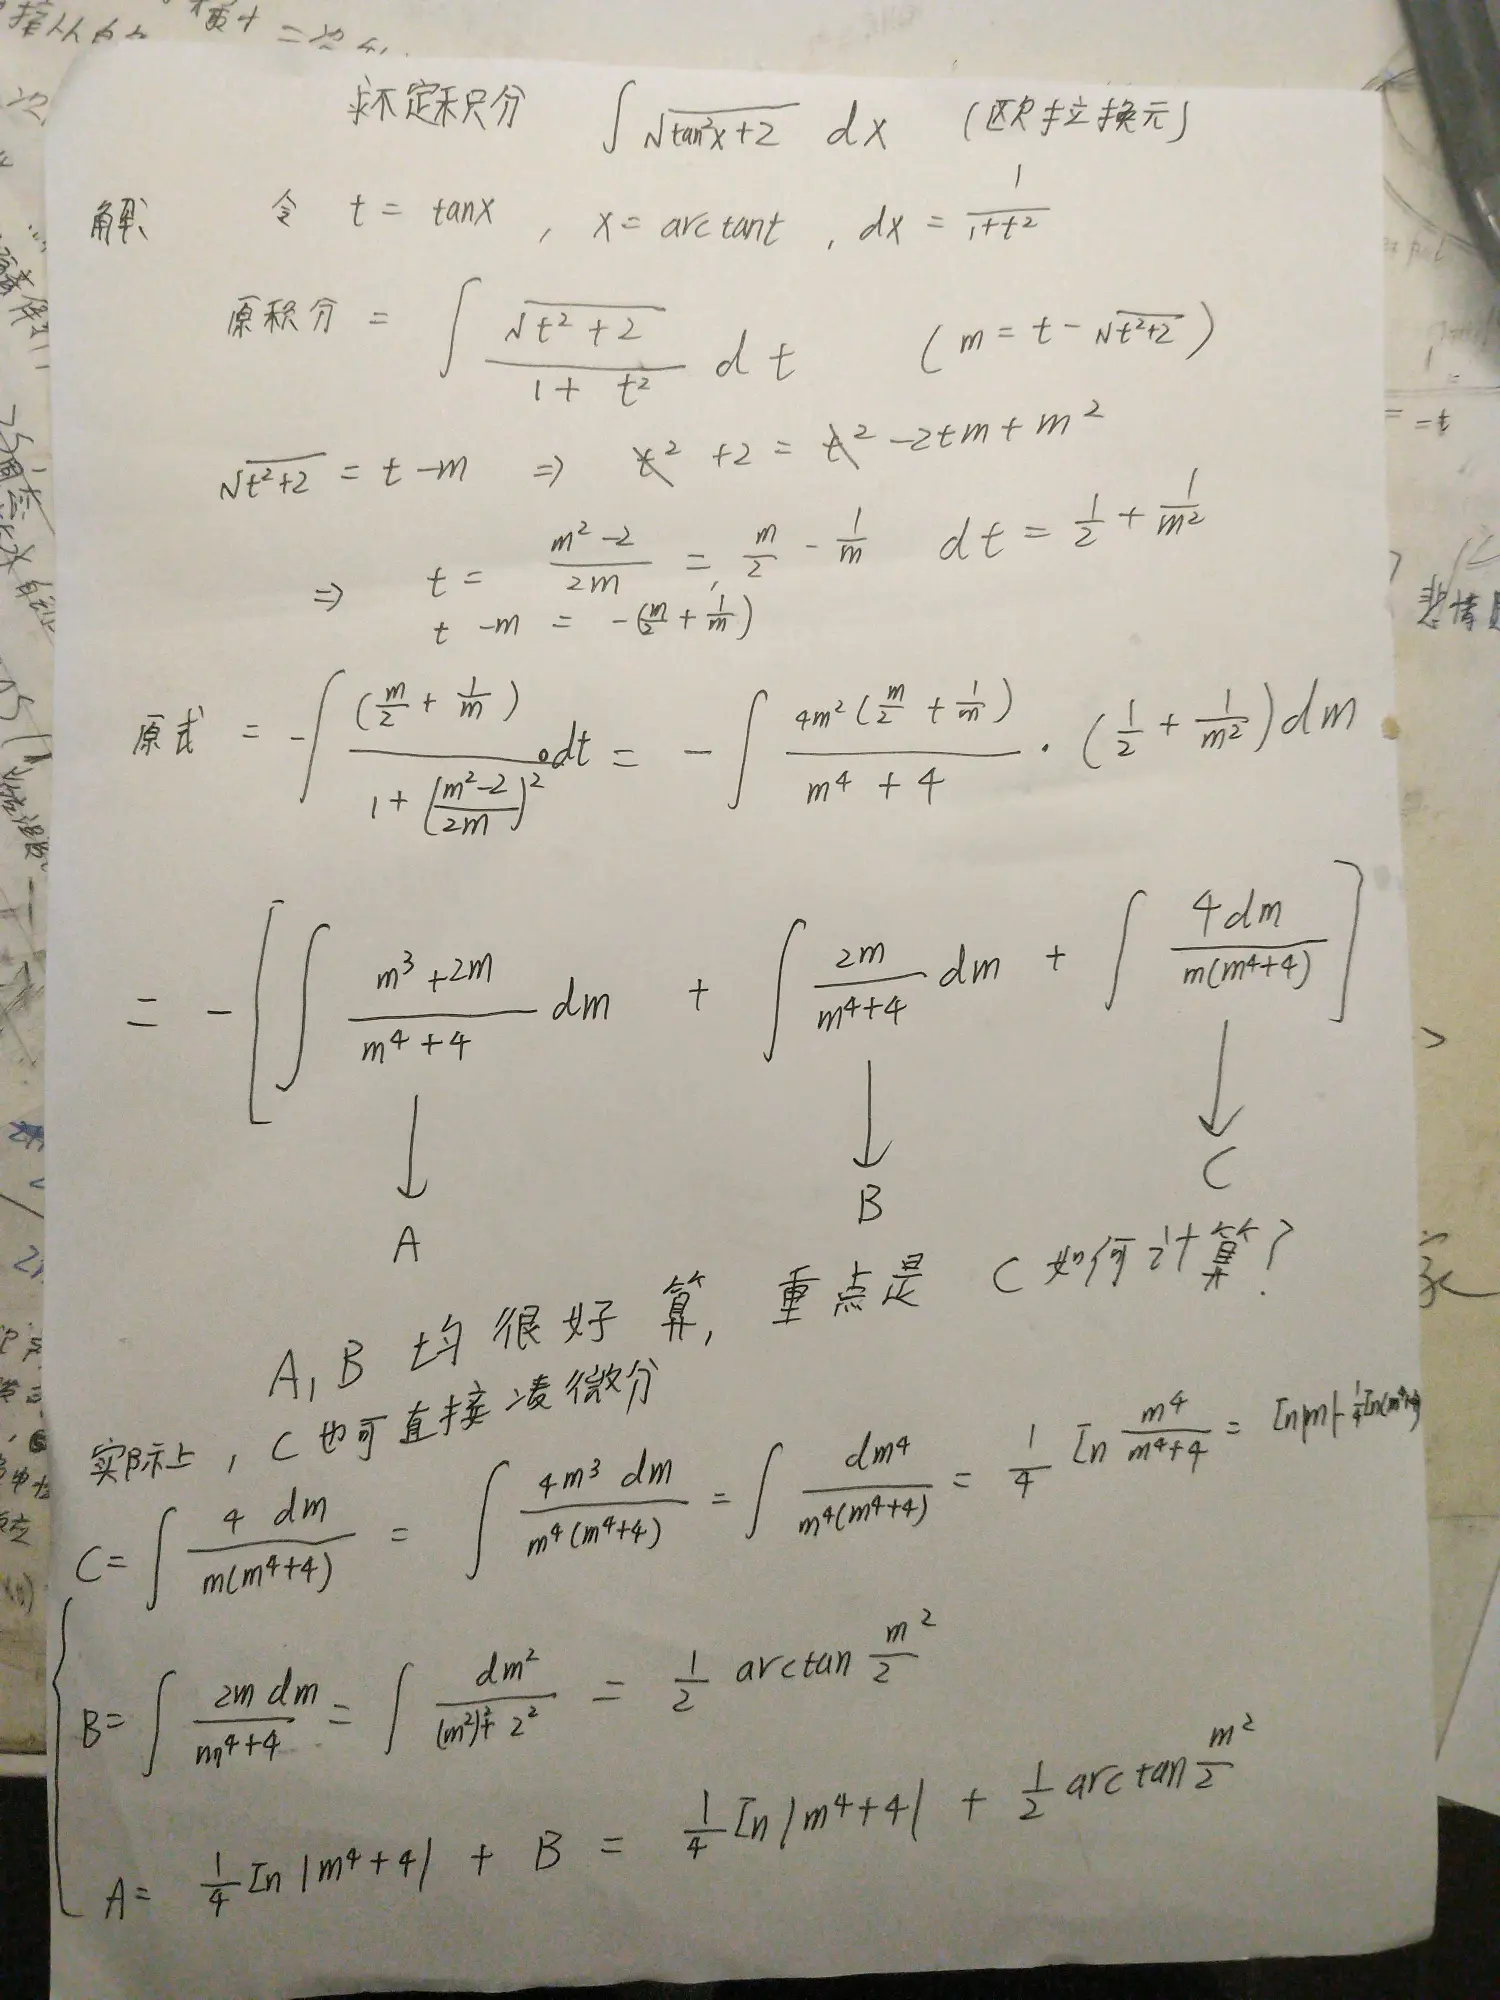 求不定积分 ∫ √(tan²x+2) dx (欧拉换元)
解、 令 t = tanx , x = arctant , dx = 1/(1+t²)
原积分 = ∫ √(t²+2)/(1+t²) dt (m = t-√(t²+2))
√(t²+2) = t-m ⇒ t²+2 = t²-2tm+m²
⇒ t = (m²-2)/(2m) = m/2 - 1/m dt = 1/2 + 1/m²
t-m = -(m/2 + 1/m)
原式 = -∫ (m/2 + 1/m)/(1+((m²-2)/(2m))²) ·dt = -∫ 4m²(m/2 + 1/m)/(m⁴+4) · (1/2 + 1/m²)dm
= -[∫ (m³+2m)/(m⁴+4) dm + ∫ 2m/(m⁴+4) dm + ∫ 4dm/(m(m⁴+4))]
↓ ↓ ↓
A B C
A, B 均很好算, 重点是 C 如何计算?
实际上, C也可直接凑微分
C = ∫ 4 dm/(m(m⁴+4)) = ∫ 4m³ dm/(m⁴(m⁴+4)) = ∫ dm⁴/(m⁴(m⁴+4)) = 1/4 ln m⁴/(m⁴+4) = ln|m| - 1/4 ln(m⁴+4)
B = ∫ 2m dm/(m⁴+4) = ∫ dm²/((m²)²+2²) = 1/2 arctan m²/2
A = 1/4 ln|m⁴+4| + B = 1/4 ln|m⁴+4| + 1/2 arctan m²/2
= -t
悲情